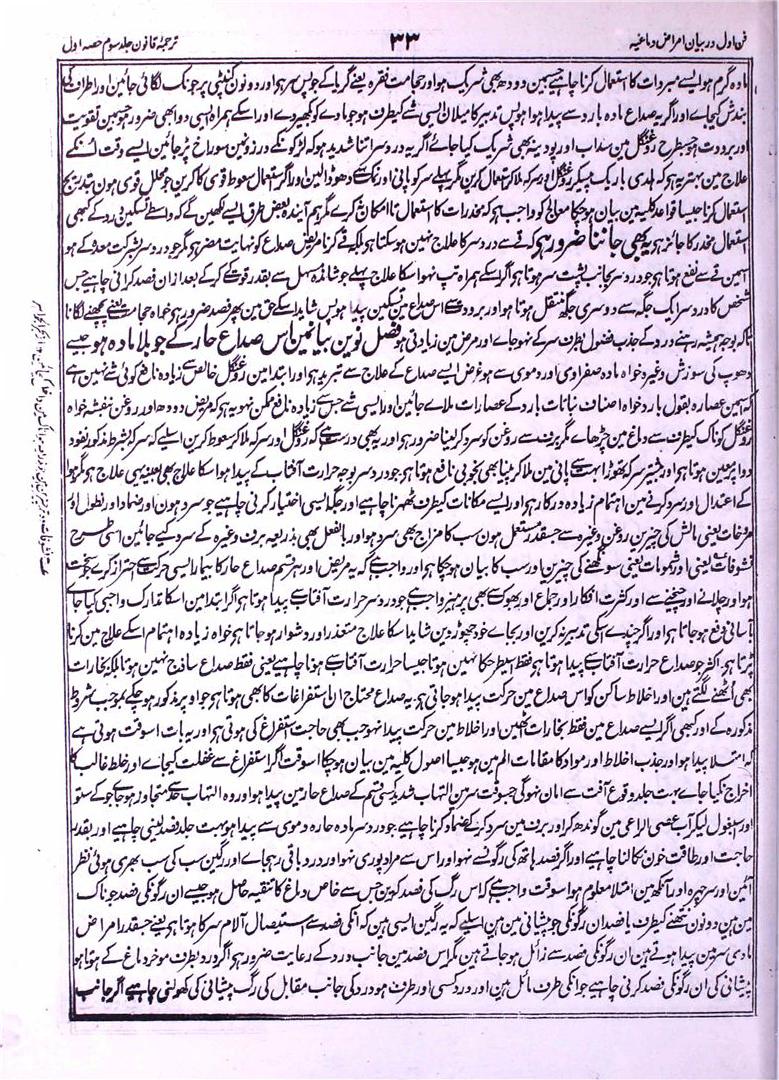 ترجمۂ قانون جلد سوم حصہ اول ۳۳ فن اول در بیان امراض دماغیہ
مادہ گرم ہو ایسے مبردات کا استعمال کرنا چاہیے جسمین دودھ بھی شریک ہو اور حجامت نقرہ یعنے گریا کے جو پس سر ہو اور دونون کنپٹی پر جونک لگائی جائین اور اطراف کی
بندش کیجاے اور اگر یہ صداع مادہ بارد سے پیدا ہوا ہو پس تدبیر کا میلان ایسی شے کیطرف ہو جو مادے کو بکھیر دے اور اسکے ہمراہ ایسی دوا بھی ضرور ہو جسمین تقویت
اور برودت ہو جسطرح روغن گل مین سداب اور پودینہ بھی شریک کیا جائے اگر یہ درد سر اتنا شدید ہو کہ لڑکونکے درزونمین سوراخ پڑ جائین ایسے وقت اُنکے
علاج مین بہتر یہ ہو کہ ہلدی باریک پیسکر روغن گل اور سرکہ ملا کر استعمال کرین مگر پہلے سر کو پانی اور نمک سے دھو ڈالین اور اگر استعمال سعوط قوی کا کرین جو محلل قوی ہون بتدریج
استعمال کرنا جیسا قواعد کلیہ مین بیان ہو چکا معالج کو واجب ہو کہ مخدرات کا استعمال تا امکان نکرے مگر ہم آیندہ بعض طرق ایسے لکھین گے کہ واسطے تسکین درد کے کبھی
استعمال مخدر کا جائز ہو یہ بھی جاننا ضرور ہو کہ قے سے درد سر کا علاج نہین ہو سکتا ہو بلکہ قے کرنا مریض صداع کو نہایت مضر ہو مگر جو درد سر بشرکت معدہ کے ہو
اسمین قے سے نفع ہوتا ہو جو درد سر بجانب پشت سر ہوتا ہو اگر اسکے ہمراہ تپ نہو اسکا علاج پہلے جوشاندہ مسہل سے بقدر قوت کے کرکے بعد ازان فصد کرانی چاہیے جس
شخص کا درد سر ایک جگہ سے دوسری جگہ منتقل ہوتا ہو اور برودت سے اس صداع مین تسکین پیدا ہو پس شاید اسکے حق مین پھر فصد ضرور ہو خواہ حجامت یعنے پچھنے لگانا
تاکہ بوجہ ہمیشہ رہنے درد کے جذب فضول بطرف سر کے نہو جاے اور مرض مین زیادتی ہو فصل نوین بیانمین اس صداع حار کے جو بلا مادہ ہو جیسے
دھوپ کی سوزش وغیرہ خواہ مادہ صفراوی اور دموی سے ہو غرض ایسے صداع کے علاج سے تبرید ہو اور ابتدا مین روغن گل خالص سے زیادہ نافع کوئی شے نہین ہے
کہ اسمین عصارہ بقول بارد خواہ اصناف نباتات بارد کے عصارات ملاے جائین اور ایسی شے جس سے زیادہ نافع ممکن نہو یہ ہو کہ مریض دودھ اور روغن بنفشہ خواہ
روغن گل کو ناک کیطرف سے دماغ مین چڑھاے مگر برف سے روغن کو سرد کر لینا ضرور ہو اور یہ بھی درست ہے کہ روغن گل اور سرکہ ملا کر سعوط کرین اسلیے کہ سرکہ بشرط مذکور نفوذ
دوا پر معین ہوتا ہو اور بیشتر سرکہ تھوڑا بہت پانی مین ملا کر پینا بھی بخوبی نافع ہوتا ہو جو درد سر بوجہ حرارت آفتاب کے پیدا ہوا اسکا علاج بھی بعینہ یہی علاج ہو مگر ہوا
کے اعتدال اور سرد کرنے مین اہتمام زیادہ درکار ہو اور ایسے مکانات کیطرف ٹھہرنا چاہیے اور جگہ ایسی اختیار کرنی چاہیے جو سرد ہون اور ضماد اور نطول اور
مروخات یعنی مالش کی چیزین روغن وغیرہ سے جسقدر مستعمل ہون سب کا مزاج بھی سرد ہو اور بالفعل بھی بذریعہ برف وغیرہ کے سرد کیے جائین اسی طرح
نشوقات یعنی اور شمومات یعنی سونگھنے کی چیزین اور سب کا بیان ہو چکا ہو اور واجب ہے کہ یہ مریض اور ہر قسم صداع حار کا بیمار ایسی حرکت سے احتراز کرے جو سخت
ہو اور چلانے اور چیخنے سے اور کثرت افکار اور جماع اور بھوک سے بھی پرہیز واجب ہے جو درد سر حرارت آفتاب سے پیدا ہوتا ہو اگر ابتدا مین اسکا تدارک واجبی کیا جاے
بآسانی دفع ہو جاتا ہو اور اگر چندے اسکی تدبیر نکرین اور بجاے خود چھوڑ دین شاید اسکا علاج متعذر اور دشوار ہو جاتا ہو خواہ زیادہ اہتمام اسکے علاج مین کرنا
پڑتا ہو اکثر جو صداع حرارت آفتاب سے پیدا ہوتا ہو فقط اسیطرح کا نہین ہوتا جیسا حرارت آفتاب سے ہونا چاہیے یعنی فقط صداع ساذج نہین ہوتا بلکہ بخارات
بھی اُٹھنے لگتے ہین اور اخلاط ساکن کو اس صداع مین حرکت پیدا ہو جاتی ہو یہ صداع محتاج ان استفراغات کا بھی ہوتا ہو جو اوپر مذکور ہو چکے بموجب شروط
مذکورہ کے اور کبھی اگر ایسے صداع مین فقط بخارات اٹھین اور اخلاط مین حرکت پیدا نہو جب بھی حاجت استفراغ کی ہوتی ہو اور یہ بات اسوقت ہوتی ہے
کہ امتلا پیدا ہو اور جذب اخلاط اور مواد کا مقامات الم مین ہو جیسا اصول کلیہ مین بیان ہو چکا اسوقت اگر استفراغ سے غفلت کیجاے اور خلط غالب کا
اخراج نکیا جاے بہت جلد وقوع آفت سے امان نہوگی جسوقت سر مین التہاب شدید کسی قسم کے صداع حار مین پیدا ہو اور وہ التہاب حد سے متجاوز ہو جاے جو کے ستو
اور اسپغول لیکر آب عصی الراعی مین گوندھ کر اور برف مین سرد کرکے ضماد کرنا چاہیے جو درد سر مادہ حارہ دموی سے پیدا ہو بہت جلد فصد لینی چاہیے اور بقدر
حاجت اور طاقت خون نکالنا چاہیے اور اگر فصد ہاتھ کی رگونسے نہو اور اس سے مراد پوری نہو اور درد باقی رہجاے اور رگین سب کی سب بھری ہوئی نظر
آئین اور سر چہرہ اور آنکھ مین امتلا معلوم ہو اسوقت واجب ہے کہ اس رگ کی فصد کرین جس سے خاص دماغ کا تنقیہ حاصل ہو جیسے ان رگونکی فصد جو ناک
مین ہین دونون نتھنے کیطرف یا فصد ان رگونکی جو پیشانی مین ہین اسلیے کہ یہ رگین ایسی ہین کہ انکی فصد سے استیصال آلام سر کا ہوتا ہو یعنے جسقدر امراض
مادی سر مین پیدا ہوتے ہین ان رگونکی فصد سے زائل ہو جاتے ہین مگر اس فصد مین جانب درد کے رعایت ضرور ہو اگر درد بطرف موخر دماغ کے ہوتا ہو
پیشانی کی ان رگونکی فصد کرنی چاہیے جو انکی طرف مائل ہین اور درد کسی اور طرف ہو درد کی جانب مقابل کی رگ پیشانی کی کھولنی چاہیے اگر جانب